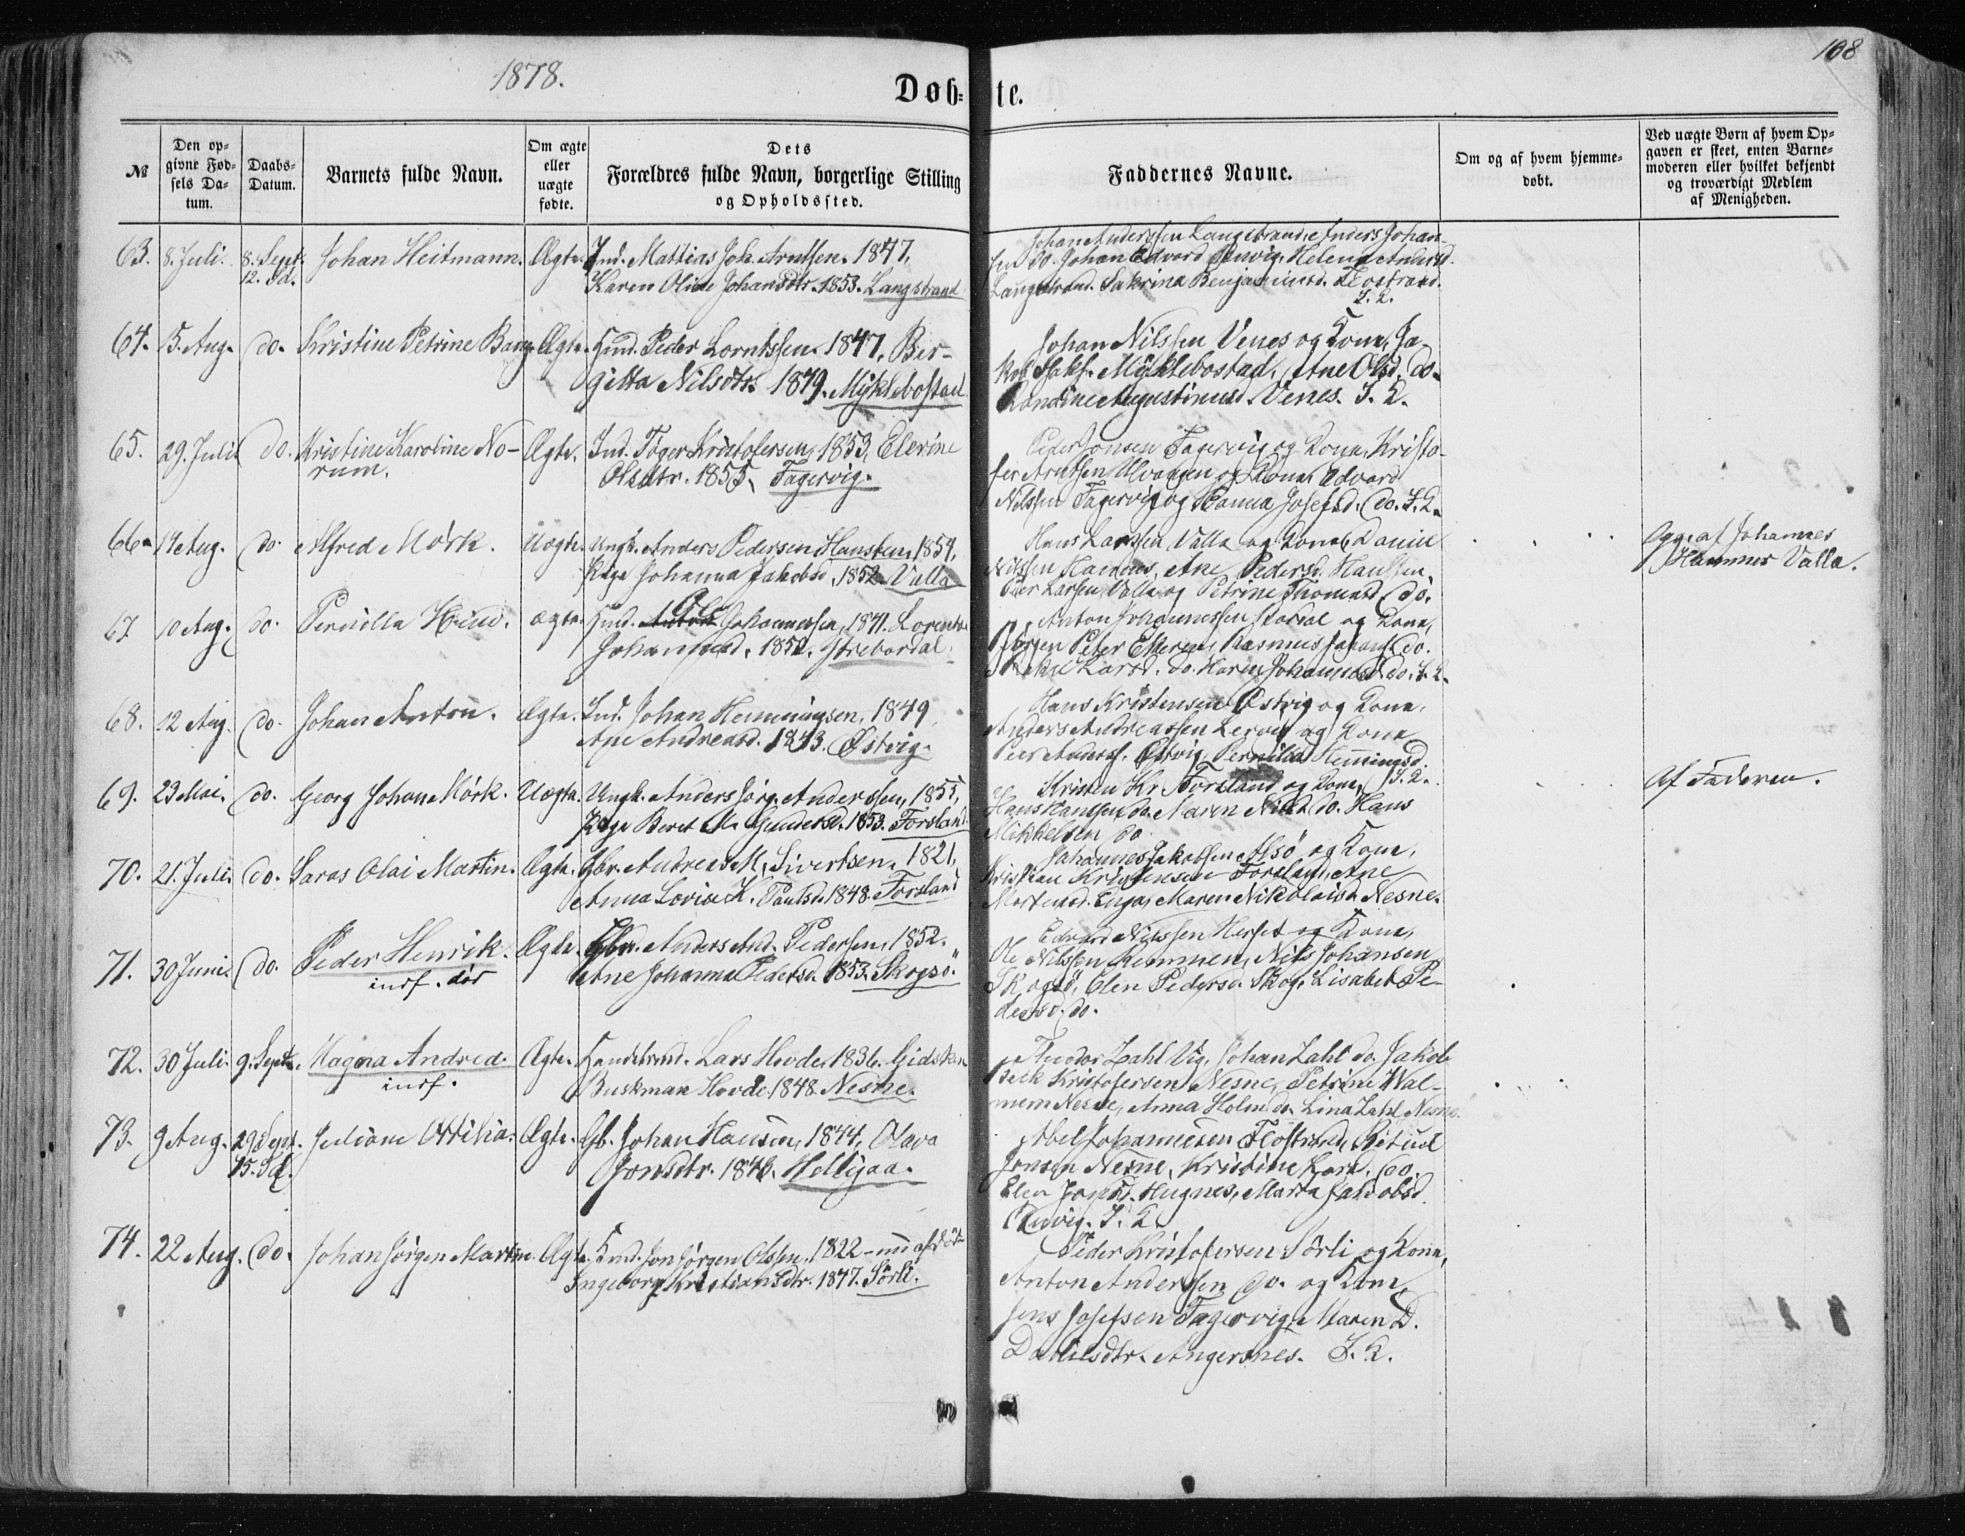 1878.
Døb-
te.
108
№
Den op-
givne Fød-
sels Da-
tum.
Daabs-
Datum.
Barnets fulde Navn.
Om ægte
eller
uægte
fødte.
Dets
Forældres fulde Navn, borgerlige Stilling
og Opholdssted.
Faddernes Navne.
Om og af hvem hjemme-
døbt.
Ved uægte Børn af hvem Op-
gaven er skeet, enten Barne-
moderen eller hvilket bekjendt
og troværdigt Medlem
af Menigheden.
63. 8. Juli. 8. Sept. Johan Heitmann. Ægte. Ind. Mattias Joh. Arntsen. 1847,
12. Sd. Karen Oline Johansdtr. 1853. Langstrand
Johan Anderssen Langstrand, Anders Johan-
sen do. Johan Edvard Helena Andersd.
Langstrand. Sakrina Benjaminsd. Flostrand.
I. K.
64. 5. Aug. do. Kristine Petrine Bang Ægte. Hmd. Peder Lorntssen. 1847, Bir-
gitta Nilsdtr. 1849. Myklebostad
Johan Nilssen Venes og Kona, Ja-
kob Myklebostad, Ane Olsd. do.
Augustinusd. Venes. I. K.
65. 29. Juli do. Kristine Karoline No- Ægte. Ind. Tøger Kristofersen, 1853, Elerine
rum. Olsdtr. 1855. Fagervig.
Peder Jonsen Fagervig og Kona, Kristo-
fer Arntsen Ulvangen og Kona, Edvard
Nilssen Fagervig og Hanna Josefsd. do. I. K.
66. 14 Aug. do. Alfred Mørk. Uægte. Ungk. Anders Pedersen Hansten, 1854,
Pige Johanna Jakobsd. 1852. Valla
Hans Larssen Valla og Kona, Daniel
Nilssen Ane Pedersd. Hansten,
Peer Larsen Valla og Petrine Thomasd. do.
Opg. af Johannes
Hammer Valla.
67 10 Aug. do. Pernilla Ægte. Hmd. Johannessen, 1841. Lorentse
Johannesd. 1852.
Anton Johannessen og Kona,
Jørgen Peter Rasmus do.
Larsd. do. Karen Johannesd. do. I. K.
68. 12 Aug. do. Johan Anton. Ægte. Ind. Johan Hemmingsen, 1849,
Ane Andreasd. 1843. Østvig.
Hans Kristensen Østvig og Kona,
Anders Andreassen Lervig og Kona,
Peer Anderss. Østvig, Pernilla Hemmingsd.
I. K.
69. 23 Mai. do. Georg Johan Mørk. Uægte. Ungk. Anders Jørg. Anderssen, 1855,
Pige Beret M. 1853. Forsland
Kristen Kr. Forsland og Kona,
Hans Hanssen do. Maren Nilsd. do. Hans
Mikkelsen do.
Af Faderen.
70. 21. Juli. do. Saras Olai Martin. Ægte. Gbr. Andreas M. Sivertsen. 1821,
Anna Lovise K. Paulsd. 1848. Forsland
Johannes Jakobsen Alsø og Kona,
Kristian Kristensen Forsland, Ane
Mortensd. Enga, Maren Nikolaisd. Nesne.
71. 30 Juni. do. Peder Henrik. Ægte. Gbr. Anders And. Pedersen, 1852.
insf. dør Ane Johanna Pedersd. 1853. Skogsø.
Edvard Nilssen Herset og Kona,
Ole Nilssen Remmen, Nils Johansen
Skogsø, Elen Pedersd. Skog, Lisabet Pe-
dersd. do.
72. 30 Juli. 9. Sept. Magna Andrea. Ægte. Handelsmd. Lars Hovde, 1836. Gidsken
insf. Buskman Hovde, 1848. Nesne.
Teodor Zahl Vig, Johan Zahl do. Jakob
Beck Kristofersen Nesne, Petrine Wal-
mem Nesne, Anna Holm do. Lina Zahl Nesne.
73. 9 Aug. 29 Sept. Juliane Ottilia. Ægte. Gb. Johan Hansen, 1844, Olava
15. Sd. Jonsdtr. 1843. Helligaa.
Abel Johannesen Flostrand,
Jonsen Nesne, Kristine Larsd. do.
Elen Jonsd. Hugnes, Marta Jakobsd.
I. K.
74. 22 Aug. do. Johan Jørgen Martin. Ægte. Hmd. Jon Jørgen Olssen, 1822 - nu afdød
Ingeborg Kristiansdtr. 1847. Sørli.
Peder Kristofersen Sørli og Kona,
Anton Anderssen do. og Kona,
Jens Josefsen Fagervig, Maren D.
Danielsdtr. Angersnes. I. K.